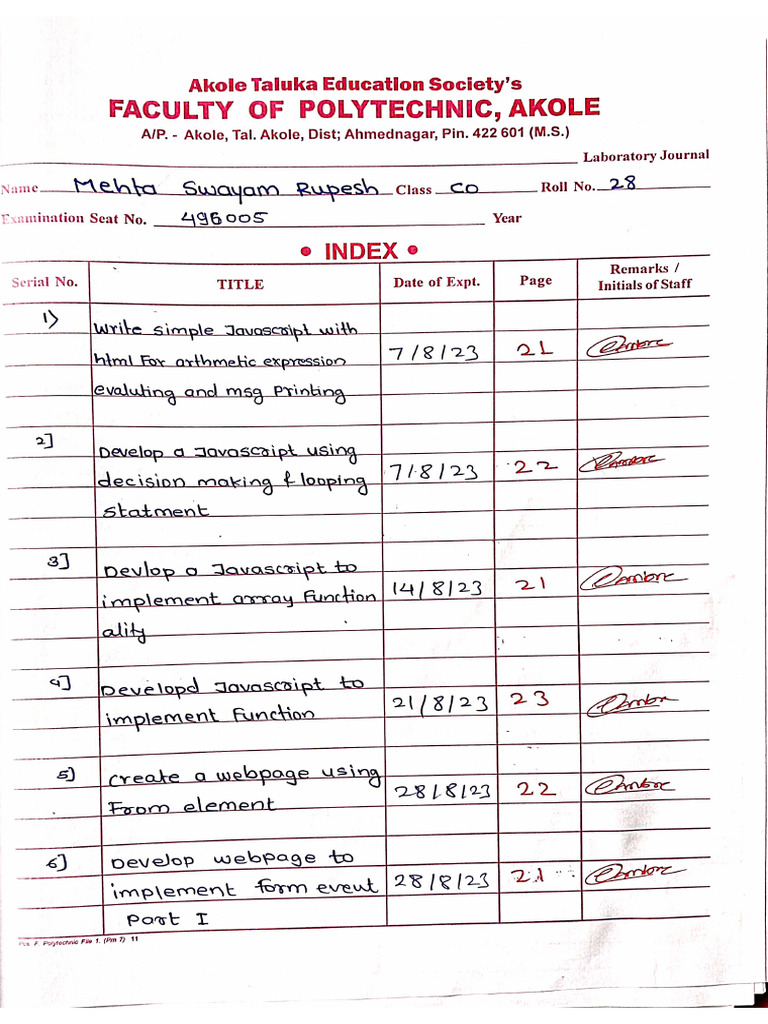 Akole Taluka Education Society's
FACULTY OF POLYTECHNIC, AKOLE
A/P. - Akole, Tal. Akole, Dist; Ahmednagar, Pin. 422 601 (M.S.)
Laboratory Journal
Name Mehta Swayam Rupesh Class CO Roll No. 28
Examination Seat No. 496005 Year
• INDEX •
Serial No. TITLE Date of Expt. Page Remarks / Initials of Staff
1) Write simple Javascript with
html For arthmetic expression 7/8/23 21
evaluting and msg Printing
2] Develop a Javascript using
decision making & looping 7/8/23 22
statment
3] Devlop a Javascript to
implement array Function 14/8/23 21
ality
4] Developd Javascript to
implement Function 21/8/23 23
5] Create a webpage using
From element 28/8/23 22
6] Develop webpage to
implement form event 28/8/23 21
Part I
Pos. F. Polytechnic File 1. (Pm 7) 11